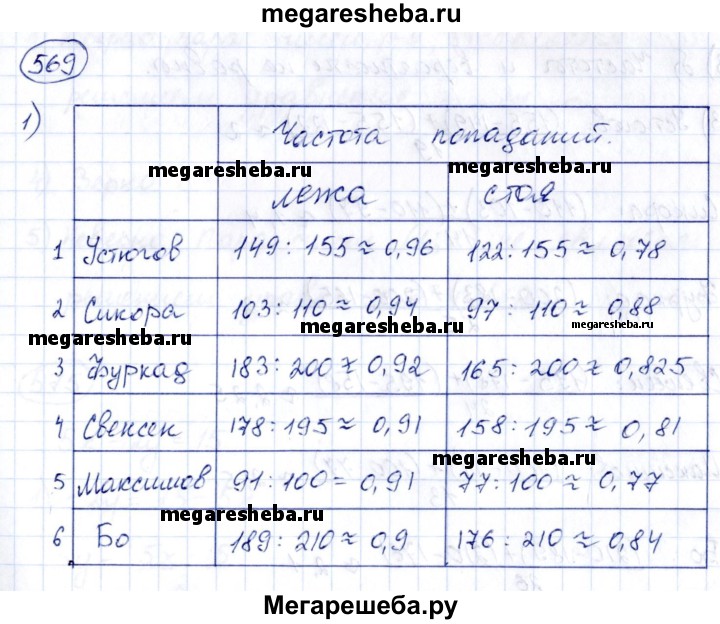 megaresheba.ru
569
1)
Частота попаданий.
megaresheba.ru megaresheba.ru
лежа стоя
1 Устюгов 149 : 155 ≈ 0,96 122 : 155 ≈ 0,78
2 Сикора 103 : 110 ≈ 0,94 97 : 110 ≈ 0,88
megaresheba.ru megaresheba.ru megaresheba.ru
3 Фуркад 183 : 200 ≈ 0,92 165 : 200 ≈ 0,825
4 Свенсен 178 : 195 ≈ 0,91 158 : 195 ≈ 0,81
megaresheba.ru
5 Максимов 91 : 100 = 0,91 77 : 100 ≈ 0,77
megaresheba.ru
6 Бо 189 : 210 ≈ 0,9 176 : 210 ≈ 0,84
Мегарешеба.ру